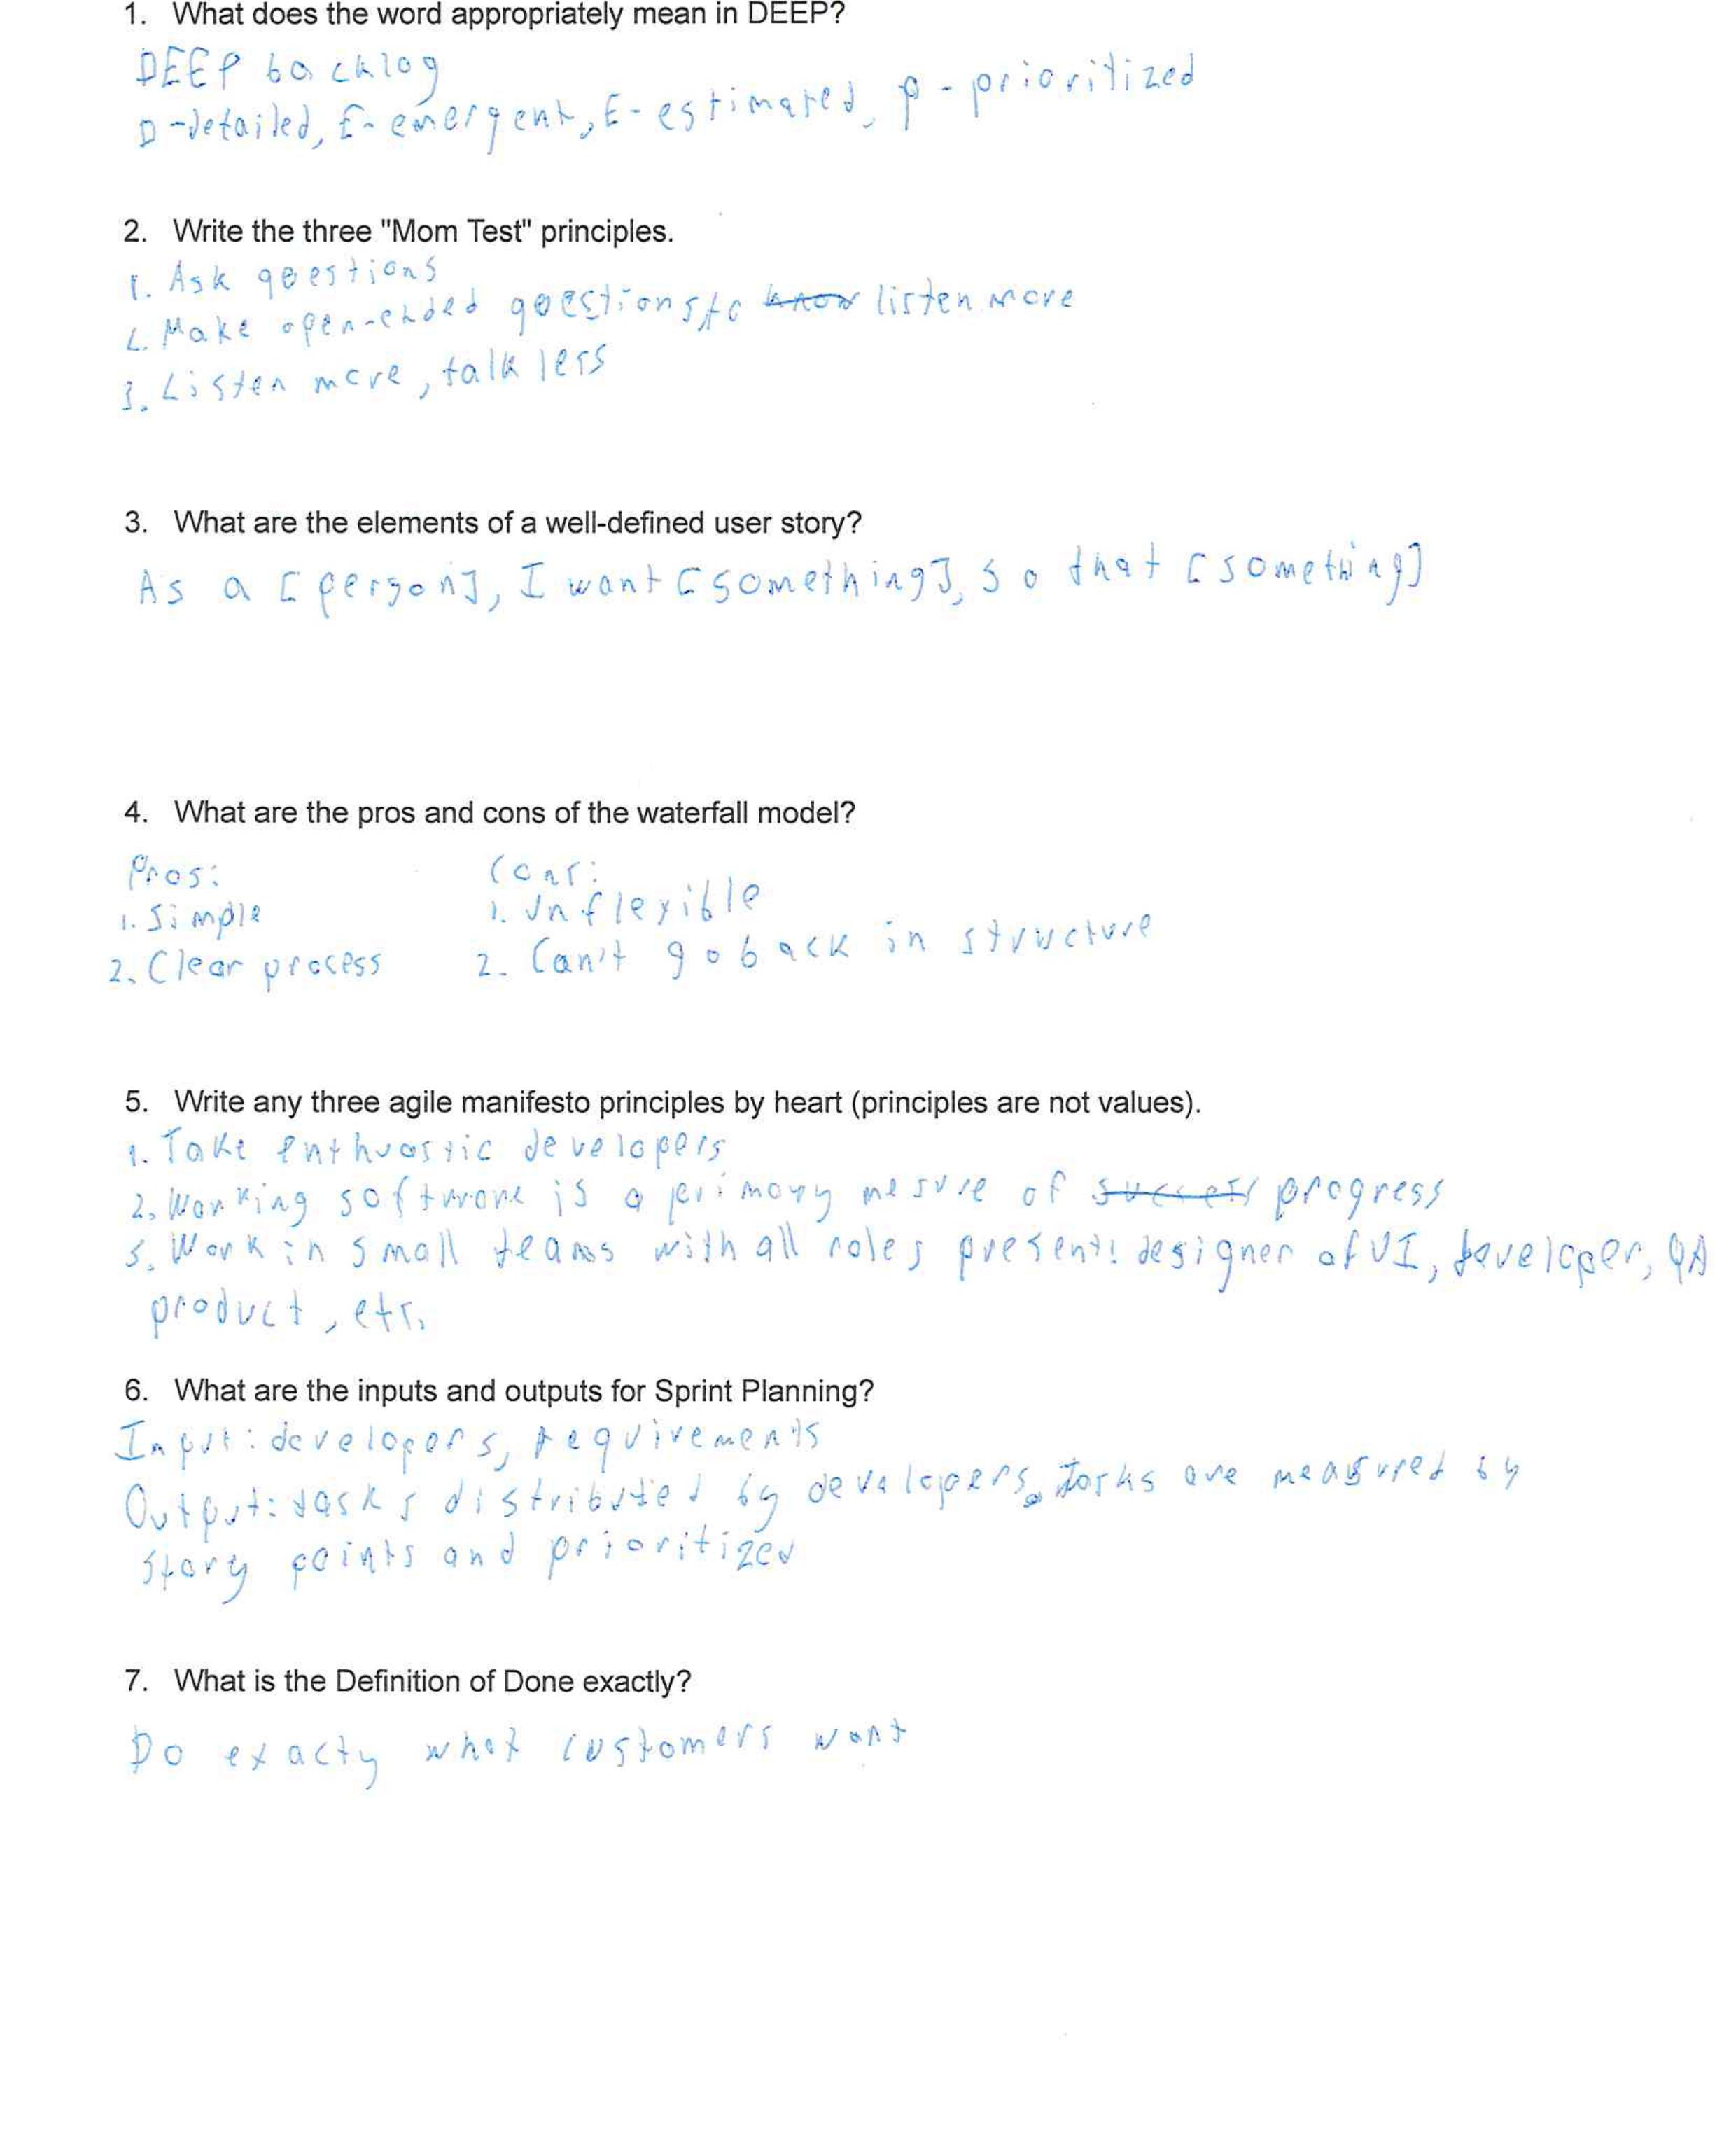 1. What does the word appropriately mean in DEEP?
DEEP backlog
D-detailed, E-emergent, E-estimated, p-prioritized
2. Write the three "Mom Test" principles.
1. Ask questions
2. Make open-ended questions to know listen more
3. Listen more, talk less
3. What are the elements of a well-defined user story?
As a [person], I want [something], so that [something]
4. What are the pros and cons of the waterfall model?
Pros: Cons:
1. Simple 1. Unflexible
2. Clear process 2. Can't go back in structure
5. Write any three agile manifesto principles by heart (principles are not values).
1. Take enthuastic developers
2. Working software is a primary mesure of success progress
3. Work in small teams with all roles present: designer of UI, developer, QA
product, etc.
6. What are the inputs and outputs for Sprint Planning?
Input: developers, requirements
Output: tasks distributed by developers. Tasks are measured by
story points and prioritized
7. What is the Definition of Done exactly?
Do exacty what customers want